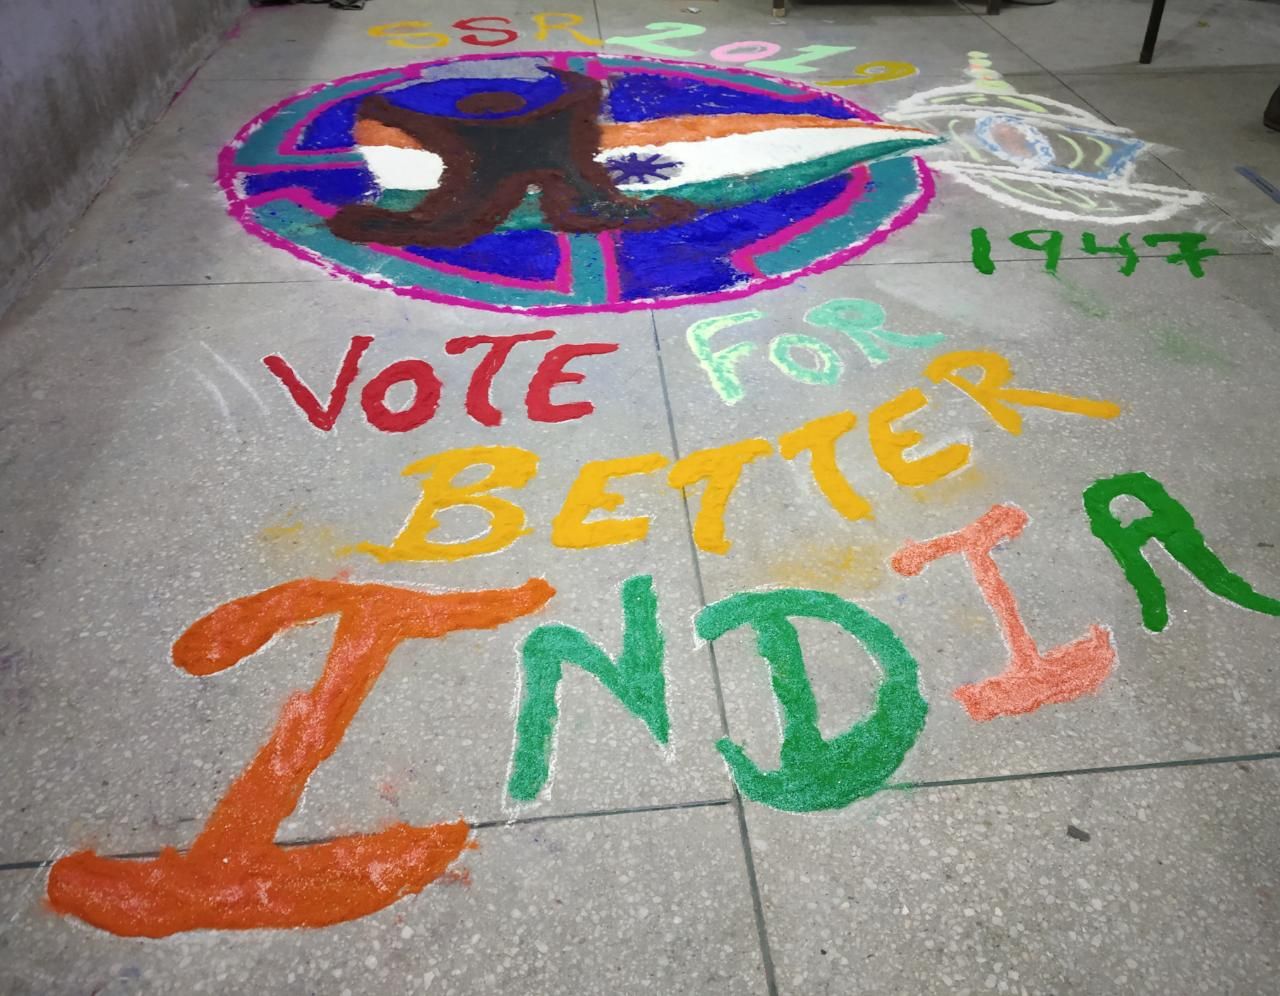 SSR 2019
1947
VOTE FOR
BETTER
INDIA